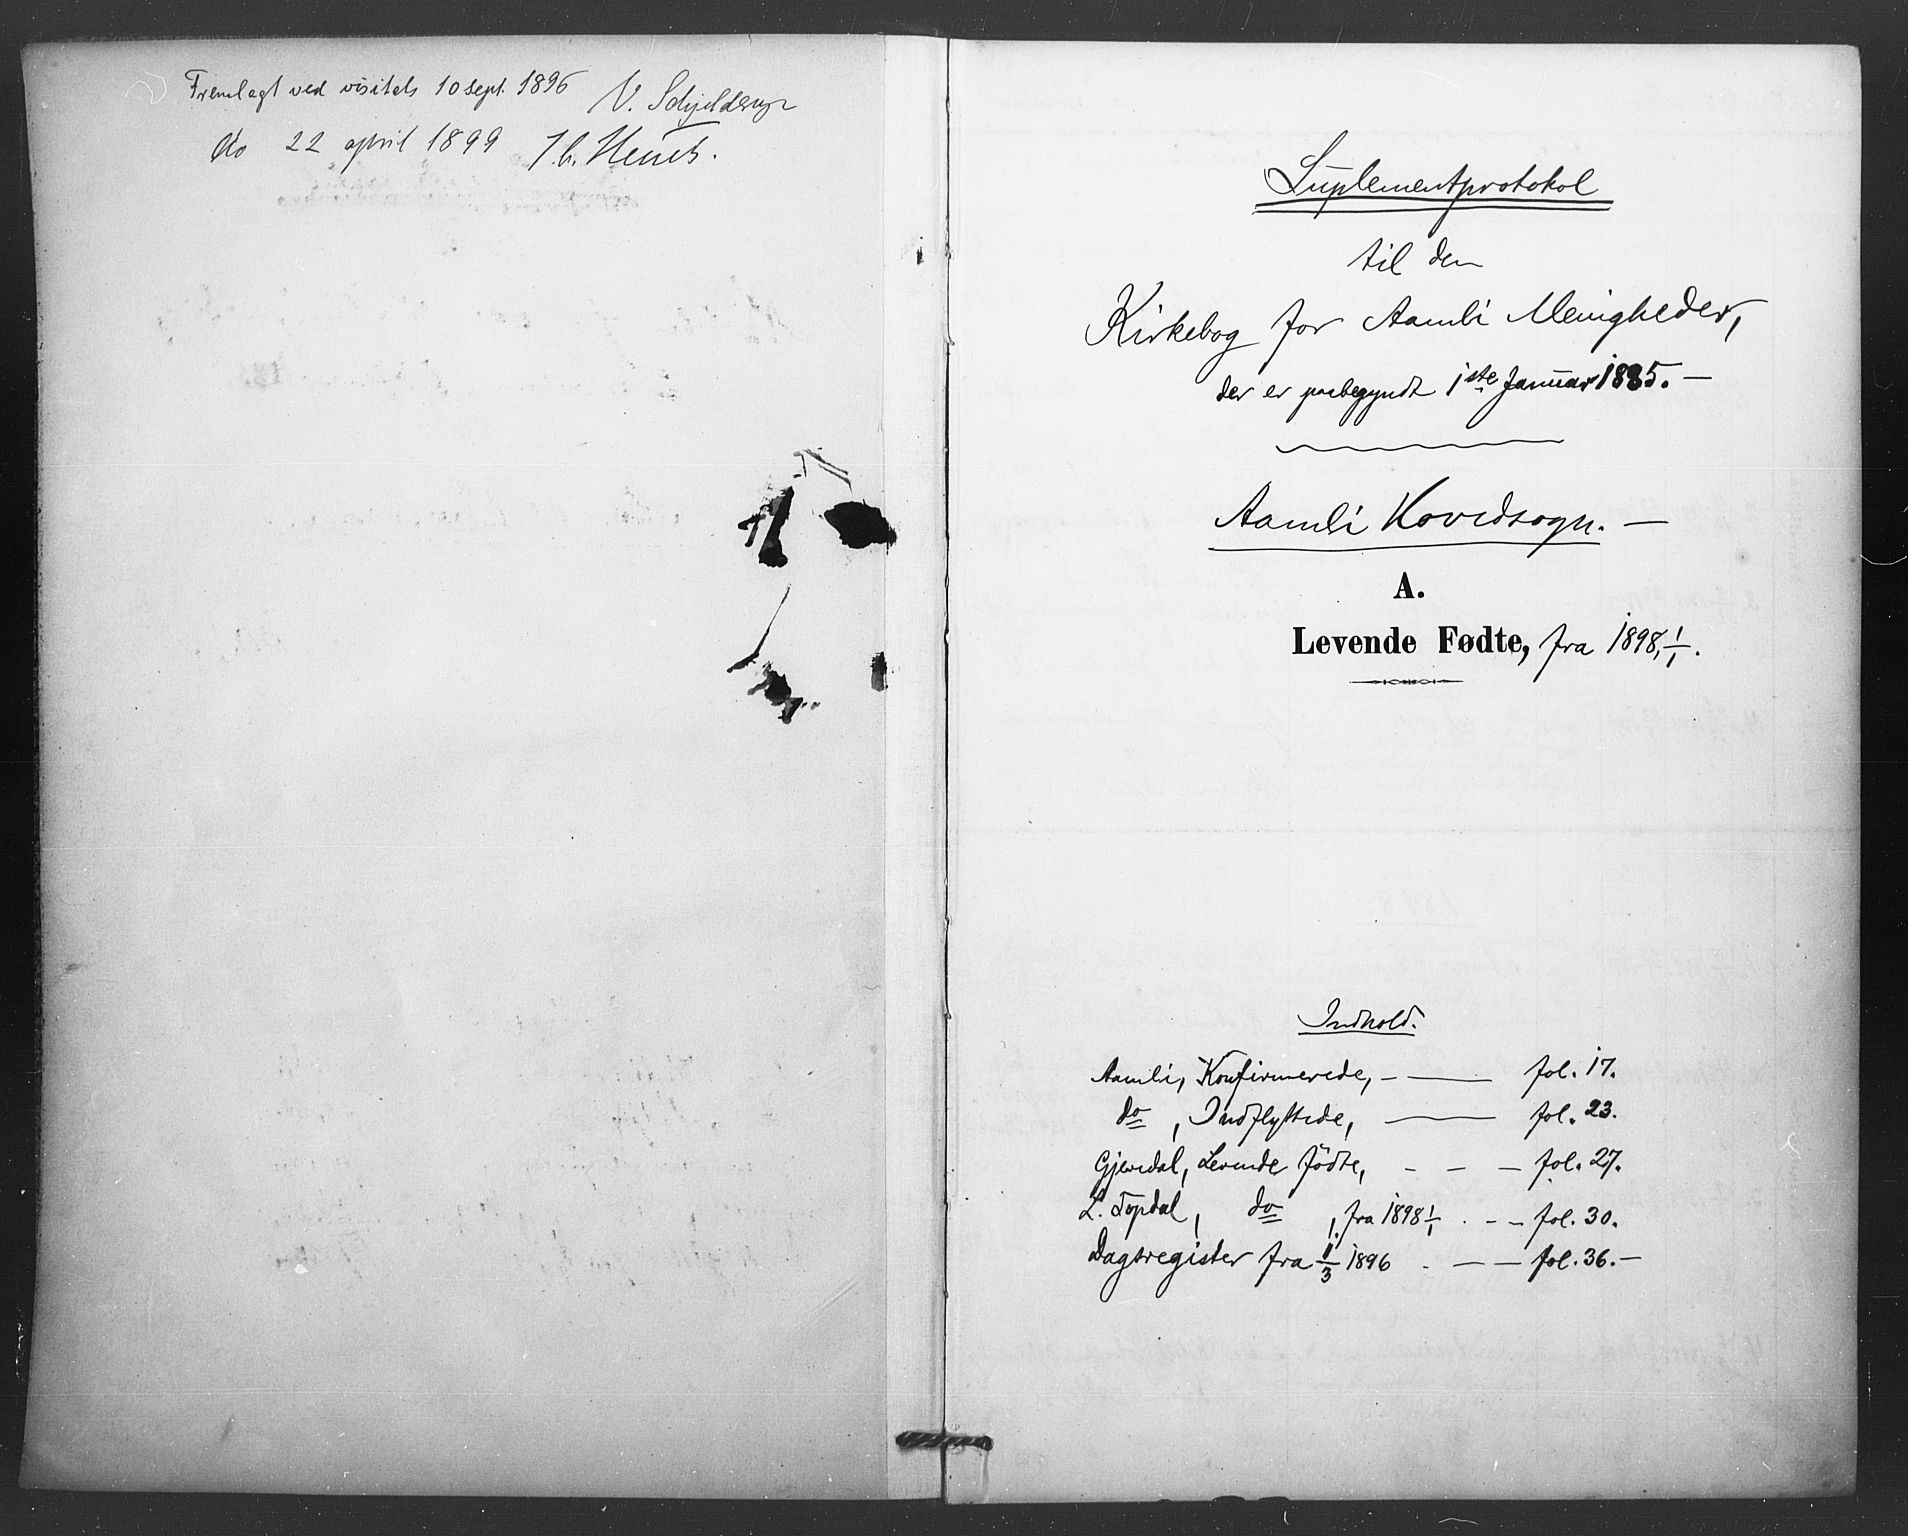 Fremlagt ved visitats 10 sept. 1896 V. Schjelderup
do 22 april 1899 Th. Heuch.
Suplementprotokol
til den
Kirkebog for Aamli Menigheder,
der er paabegyndt 1ste Januar 1885. —
Aamli Hovedsogn. —
A.
Levende Fødte, fra 1898, 1/1.
Indhold.
Aamli, Konfirmerede, — — fol. 17.
do, Indflyttede, — fol. 23.
Gjevedal, Levende födte, - - — fol. 27.
L. Topdal, do, fra 1898 1/1 . - - fol. 30.
Dagsregister fra 1/3 1896 . — — fol. 36. —